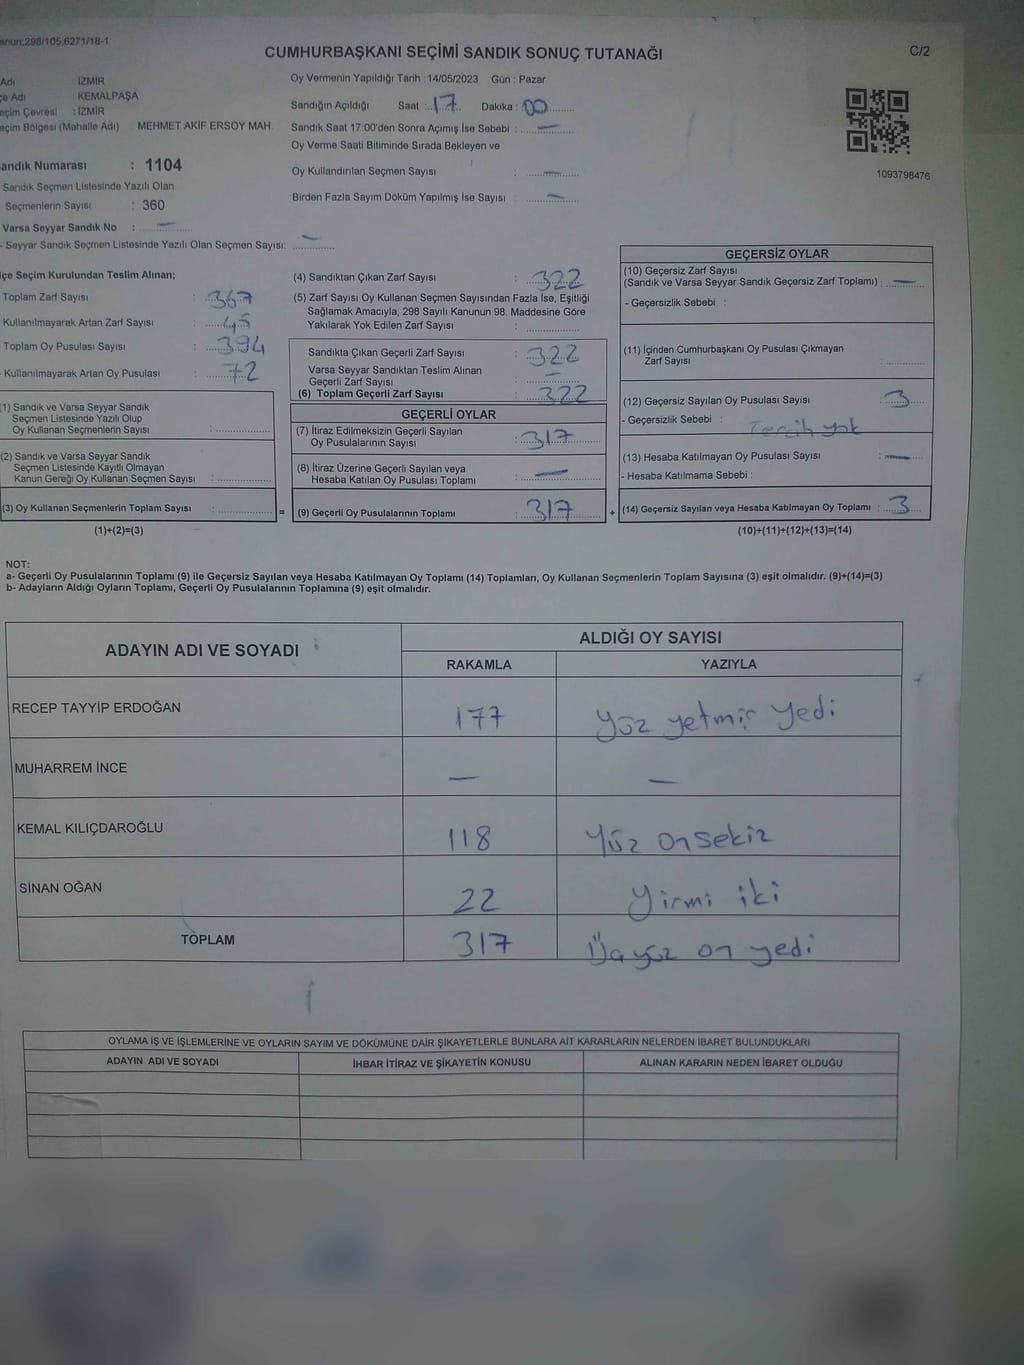 anun;298/105;6271/18-1
CUMHURBAŞKANI SEÇİMİ SANDIK SONUÇ TUTANAĞI
C/2
Adı İZMİR
çe Adı KEMALPAŞA
eçim Çevresi : İZMİR
eçim Bölgesi (Mahalle Adı) MEHMET AKİF ERSOY MAH.
andık Numarası : 1104
Sandık Seçmen Listesinde Yazılı Olan
Seçmenlerin Sayısı : 360
Varsa Seyyar Sandık No : —
- Seyyar Sandık Seçmen Listesinde Yazılı Olan Seçmen Sayısı: —
Oy Vermenin Yapıldığı Tarih : 14/05/2023 Gün : Pazar
Sandığın Açıldığı Saat : 17 Dakika : 00
Sandık Saat 17:00'den Sonra Açımış İse Sebebi : —
Oy Verme Saati Bitiminde Sırada Bekleyen ve
Oy Kullandırılan Seçmen Sayısı : —
Birden Fazla Sayım Döküm Yapılmış İse Sayısı : —
1093798476
lçe Seçim Kurulundan Teslim Alınan;
Toplam Zarf Sayısı : 367
Kullanılmayarak Artan Zarf Sayısı : 45
Toplam Oy Pusulası Sayısı : 394
Kullanılmayarak Artan Oy Pusulası : 72
(1) Sandık ve Varsa Seyyar Sandık
Seçmen Listesinde Yazılı Olup
Oy Kullanan Seçmenlerin Sayısı :
(2) Sandık ve Varsa Seyyar Sandık
Seçmen Listesinde Kayıtlı Olmayan
Kanun Gereği Oy Kullanan Seçmen Sayısı :
(3) Oy Kullanan Seçmenlerin Toplam Sayısı :
(1)+(2)=(3)
=
(4) Sandıktan Çıkan Zarf Sayısı : 322
(5) Zarf Sayısı Oy Kullanan Seçmen Sayısından Fazla İse, Eşitliği
Sağlamak Amacıyla; 298 Sayılı Kanunun 98. Maddesine Göre
Yakılarak Yok Edilen Zarf Sayısı :
Sandıkta Çıkan Geçerli Zarf Sayısı : 322
Varsa Seyyar Sandıktan Teslim Alınan
Geçerli Zarf Sayısı : —
(6) Toplam Geçerli Zarf Sayısı : 322
GEÇERLİ OYLAR
(7) İtiraz Edilmeksizin Geçerli Sayılan
Oy Pusulalarının Sayısı : 317
(8) İtiraz Üzerine Geçerli Sayılan veya
Hesaba Katılan Oy Pusulası Toplamı : —
(9) Geçerli Oy Pusulalarının Toplamı : 317
+
GEÇERSİZ OYLAR
(10) Geçersiz Zarf Sayısı
(Sandık ve Varsa Seyyar Sandık Geçersiz Zarf Toplamı) : —
- Geçersizlik Sebebi :
(11) İçinden Cumhurbaşkanı Oy Pusulası Çıkmayan
Zarf Sayısı :
(12) Geçersiz Sayılan Oy Pusulası Sayısı : 3
- Geçersizlik Sebebi : Tercih yok
(13) Hesaba Katılmayan Oy Pusulası Sayısı : —
- Hesaba Katılmama Sebebi :
(14) Geçersiz Sayılan veya Hesaba Katılmayan Oy Toplamı : 3
(10)+(11)+(12)+(13)=(14)
NOT:
a- Geçerli Oy Pusulalarının Toplamı (9) ile Geçersiz Sayılan veya Hesaba Katılmayan Oy Toplamı (14) Toplamları, Oy Kullanan Seçmenlerin Toplam Sayısına (3) eşit olmalıdır. (9)+(14)=(3)
b- Adayların Aldığı Oyların Toplamı, Geçerli Oy Pusulalarının Toplamına (9) eşit olmalıdır.
ADAYIN ADI VE SOYADI ALDIĞI OY SAYISI
RAKAMLA YAZIYLA
RECEP TAYYİP ERDOĞAN 177 Yüz yetmiş yedi
MUHARREM İNCE — —
KEMAL KILIÇDAROĞLU 118 Yüz onsekiz
SİNAN OĞAN 22 Yirmi iki
TOPLAM 317 Üçyüz on yedi
OYLAMA İŞ VE İŞLEMLERİNE VE OYLARIN SAYIM VE DÖKÜMÜNE DAİR ŞİKAYETLERLE BUNLARA AİT KARARLARIN NELERDEN İBARET BULUNDUKLARI
ADAYIN ADI VE SOYADI İHBAR İTİRAZ VE ŞİKAYETİN KONUSU ALINAN KARARIN NEDEN İBARET OLDUĞU